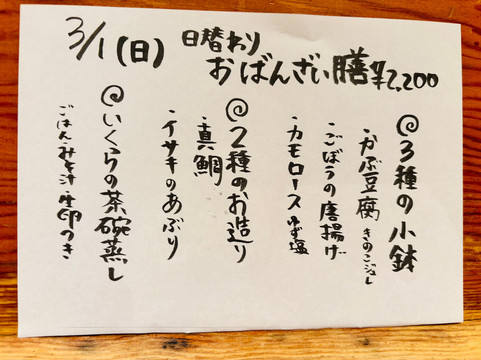 3/1(日) 日替わり
おばんざい膳 ¥2,200
◎3種の小鉢
・かぶ豆腐 きのこジュレ
・ごぼうの唐揚げ
・カモロース ゆず塩
◎2種のお造り
・真鯛
・イサキのあぶり
◎いくらの茶碗蒸し
ごはん・みそ汁・生卵つき